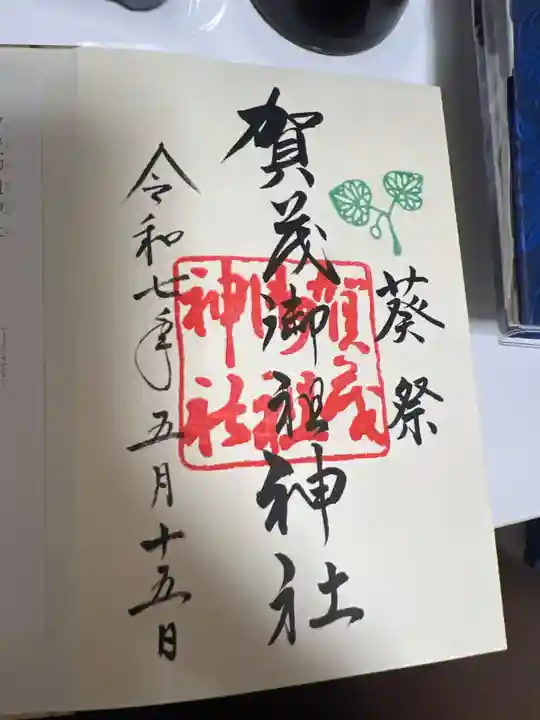 葵祭
賀茂御祖神社
令和七年五月十五日
賀茂
御祖
神社